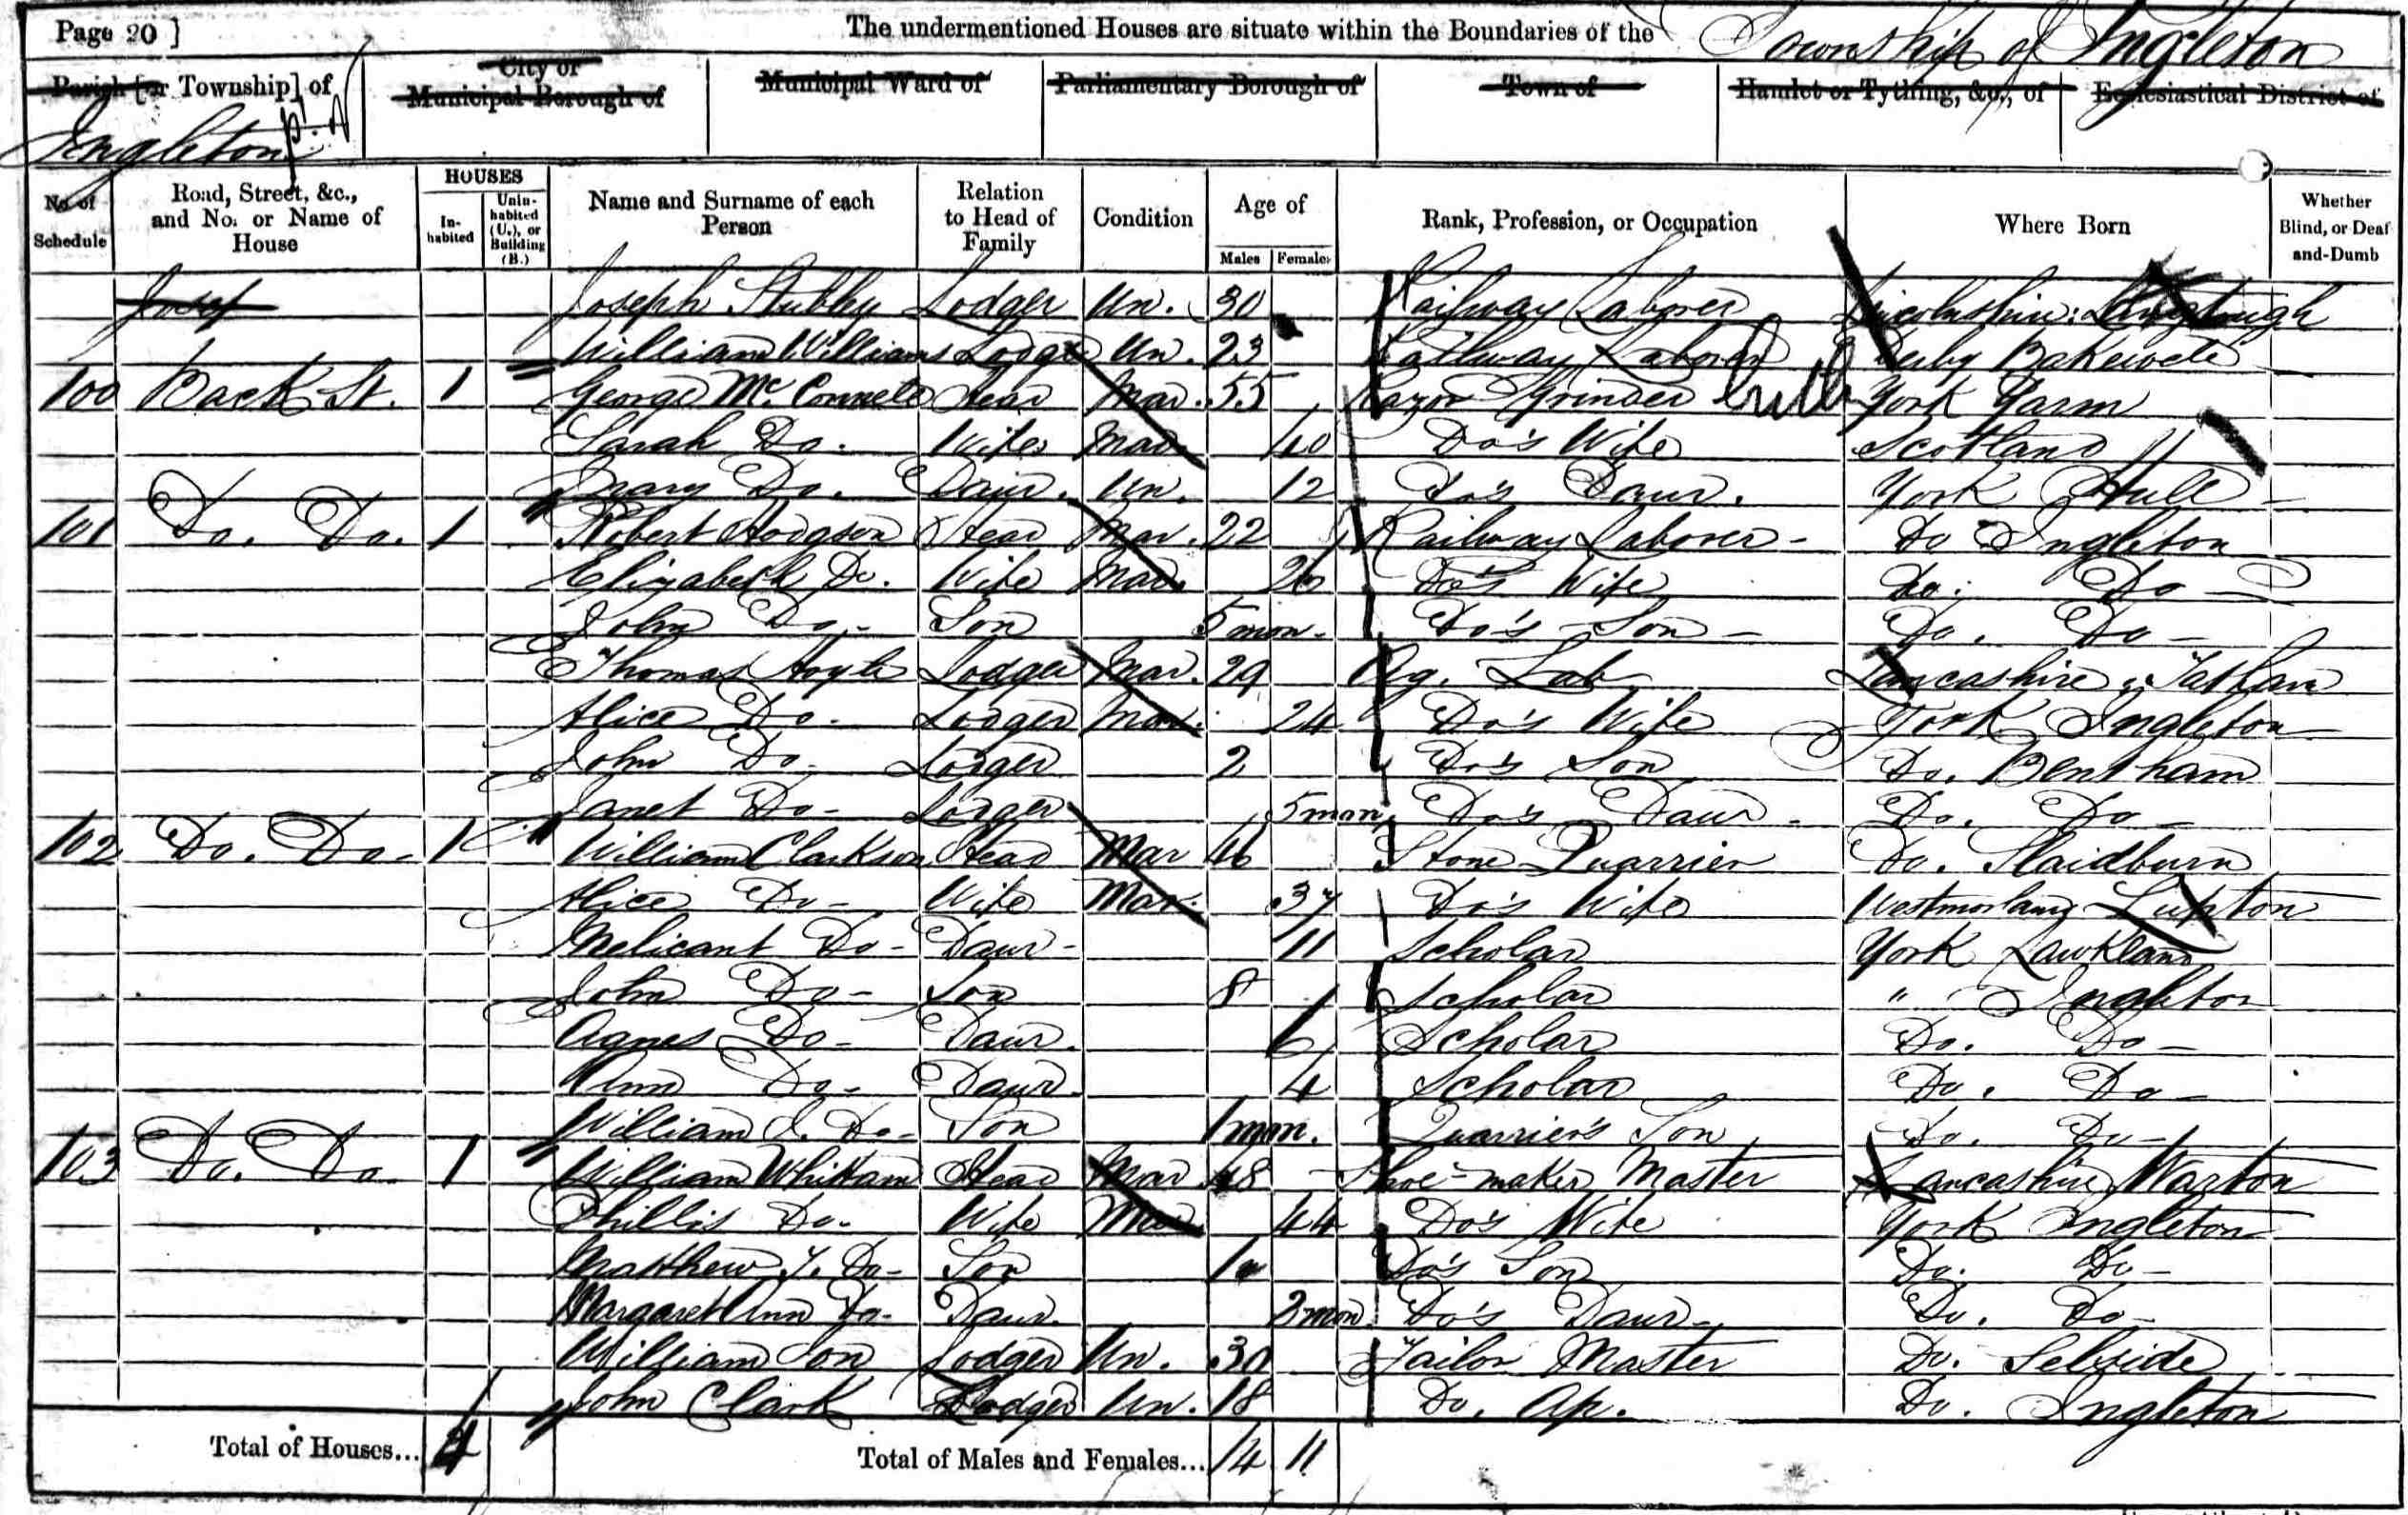 Page 20 ] The undermentioned Houses are situate within the Boundaries of the Township of Ingleton
Parish [or Township] of City or Municipal Borough of Municipal Ward of Parliamentary Borough of Town of Hamlet or Tything, &c., of Ecclesiastical District of
Ingleton
No. of Schedule Road, Street, &c., and No. or Name of House HOUSES Inhabited Uninhabited (U.), or Building (B.) Name and Surname of each Person Relation to Head of Family Condition Age of Males Females Rank, Profession, or Occupation Where Born Whether Blind, or Deaf-and-Dumb
Josep Joseph Stubby Lodger Un. 30 Railway Laborer Lincolnshire:
William Williams Lodger Un. 23 Railway Laborer Derby Bakewell
100 Back St. 1 George Mc.Connell Head Mar. 55 Razor Grinder York Yarm
Sarah Do. Wife Mar 40 Do's Wife Scotland
Mary Do. Daur. Un. 12 Do's Daur. York Hull
101 Do. Do. 1 Robert Hodgson Head Mar. 22 Railway Laborer - Do Ingleton
Elizabeth Do. Wife Mar. 26 Do's Wife Do. Do
John Do - Son 5 mon. Do's Son - Do. Do -
Thomas Hoyle Lodger Mar. 29 Ag. Lab Lancashire, Tatham
Alice Do - Lodger Mar. 24 Do's Wife York Ingleton
John Do - Lodger 2 Do's Son Do. Bentham
Janet Do - Lodger 5 mon. Do's Daur - Do. Do -
102 Do. Do - 1 William Clarkson Head Mar 46 Stone Quarrier Do. Slaidburn
Alice Do - Wife Mar. 37 Do's Wife Westmorland Lupton
Melicant Do - Daur - 11 Scholar York Lawkland
John Do - Son 8 Scholar " Ingleton
Agnes Do - Daur. 6 Scholar Do. Do -
Ann Do - Daur. 4 Scholar Do. Do -
William Do - Son 1 mon. Quarrier's Son Do. Do -
103 Do. Do. 1 William Whittam Head Mar 48 Shoe-maker Master Lancashire Warton
Phillis Do. Wife Mar 44 Do's Wife York Ingleton
Matthew Do - Son Do's Son Do. Do -
Margaret Ann Do - Daur. 2 mon. Do's Daur - Do. Do -
William Lodger Un. 30 Tailor Master Do. Selside
John Clark Lodger Un. 18 Do. Ap. Do. Ingleton
Total of Houses... 4 Total of Males and Females... 14 11